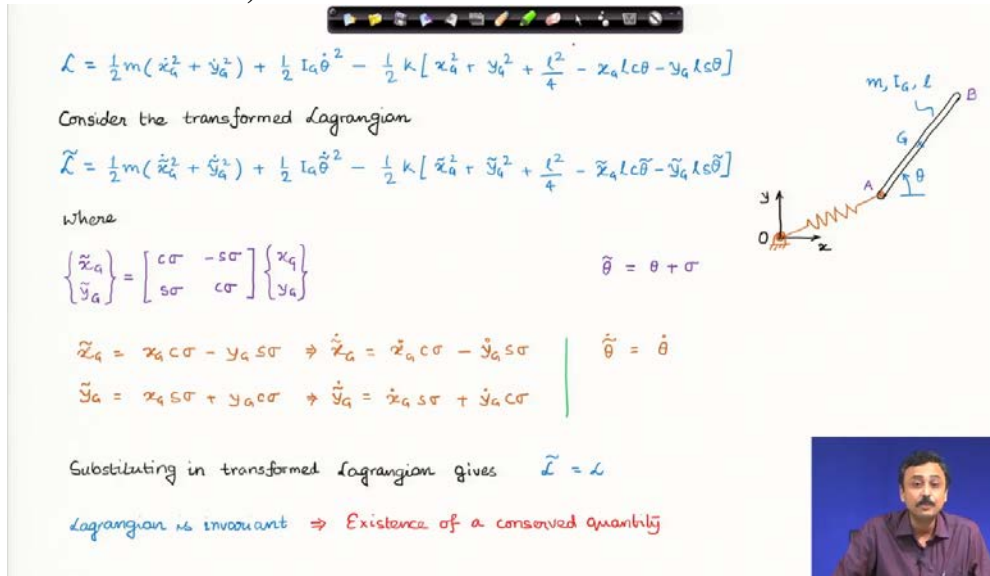 ℒ = ½ m(ẋ_G² + ẏ_G²) + ½ I_G θ̇² − ½ k[x_G² + y_G² + l²/4 − x_G l cθ − y_G l sθ]
Consider the transformed Lagrangian
ℒ̃ = ½ m(ẋ̃_G² + ẏ̃_G²) + ½ I_G θ̃̇² − ½ k[x̃_G² + ỹ_G² + l²/4 − x̃_G l cθ̃ − ỹ_G l sθ̃]
where
{x̃_G ỹ_G} = [cσ −sσ sσ cσ] {x_G y_G}
θ̃ = θ + σ
x̃_G = x_G cσ − y_G sσ ⇒ ẋ̃_G = ẋ_G cσ − ẏ_G sσ
θ̃̇ = θ̇
ỹ_G = x_G sσ + y_G cσ ⇒ ẏ̃_G = ẋ_G sσ + ẏ_G cσ
Substituting in transformed Lagrangian gives ℒ̃ = ℒ
Lagrangian is invariant ⇒ Existence of a conserved quantity
m, I_G, l
B
G
A
θ
y
O
x